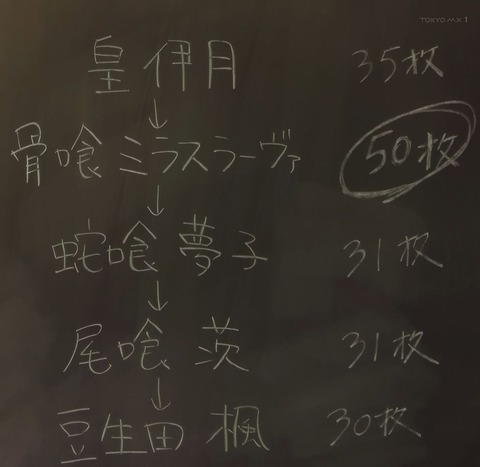 TOKYO MX 1
皇 伊月 35枚
↓
骨喰 ミラスラーヴァ 50枚
↓
蛇喰 夢子 31枚
↓
尾喰 茨 31枚
↓
豆生田 楓 30枚